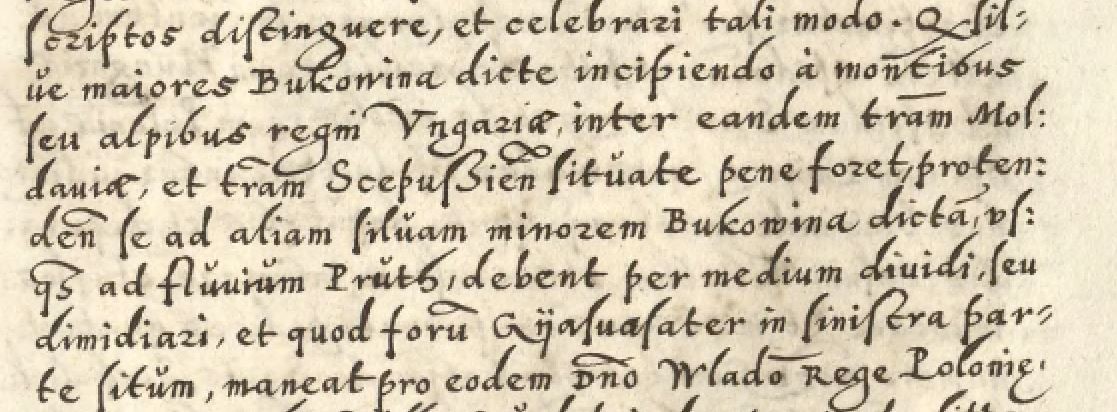 scriptos distinguere, et celebrari tali modo. Q sil:
ŭe maiores Bukowina dicte incipiendo à mōntibus
seu alpibus regni Vngariæ, inter eandem trām Mol:
dauiæ, et trām Scepusſien̄ sitŭate pene foret, proten:
den̄ se ad aliam silŭam minorem Bukowina dictā, vs:
qꝫ ad flŭuiŭm Prŭth, debent per medium diuidi, seu
dimidiari, et quod forū Gÿasuasater in sinistra par:
te sitŭm, maneat pro eodem Dn̄o Wladō Rege Polonię.